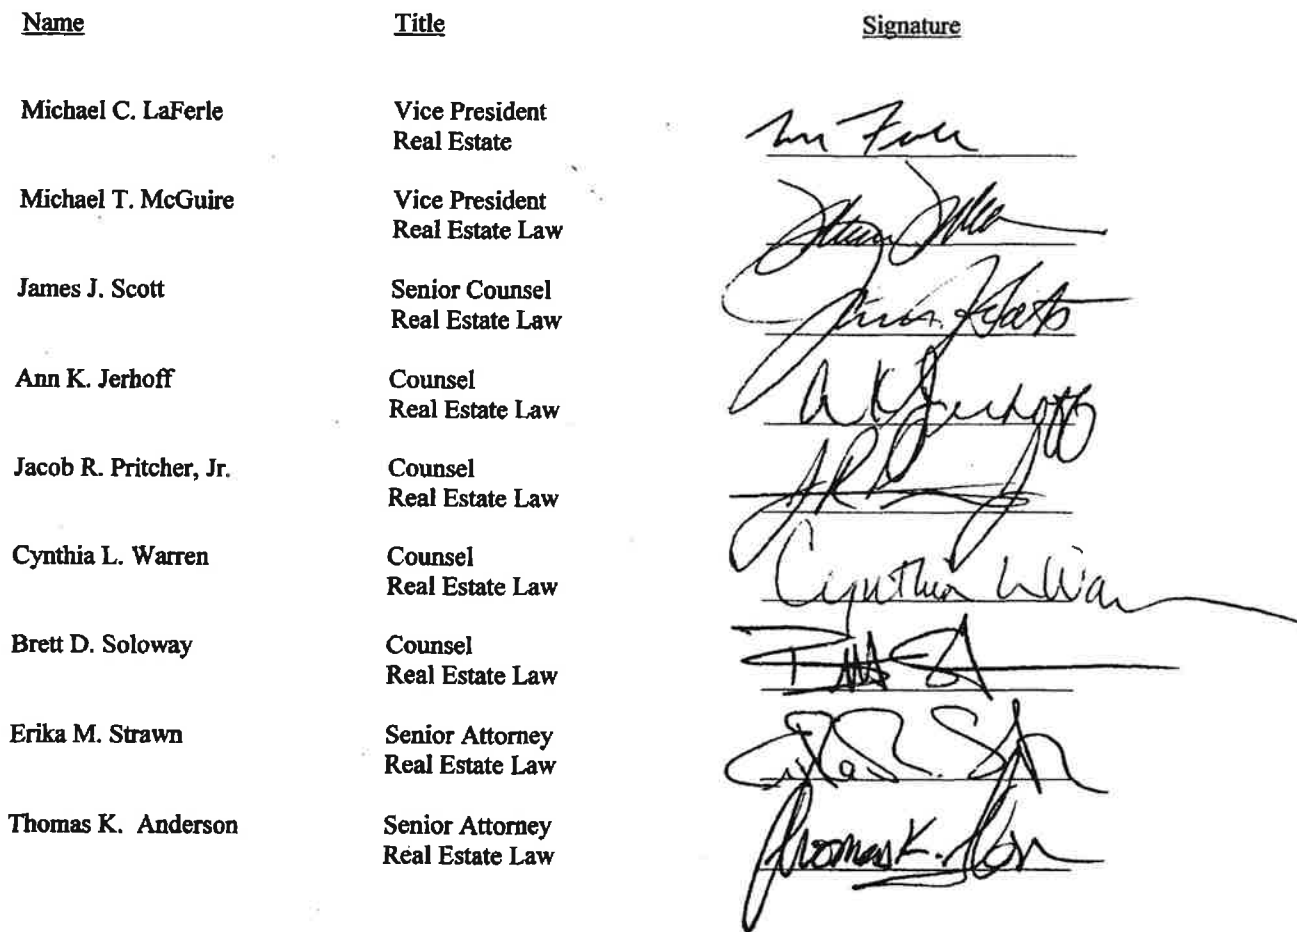 Name Title Signature
Michael C. LaFerle Vice President
Real Estate
Michael T. McGuire Vice President
Real Estate Law
James J. Scott Senior Counsel
Real Estate Law
Ann K. Jerhoff Counsel A K Jerhoff
Real Estate Law
Jacob R. Pritcher, Jr. Counsel
Real Estate Law
Cynthia L. Warren Counsel Cynthia L War
Real Estate Law
Brett D. Soloway Counsel
Real Estate Law
Erika M. Strawn Senior Attorney
Real Estate Law
Thomas K. Anderson Senior Attorney Thomas K.
Real Estate Law